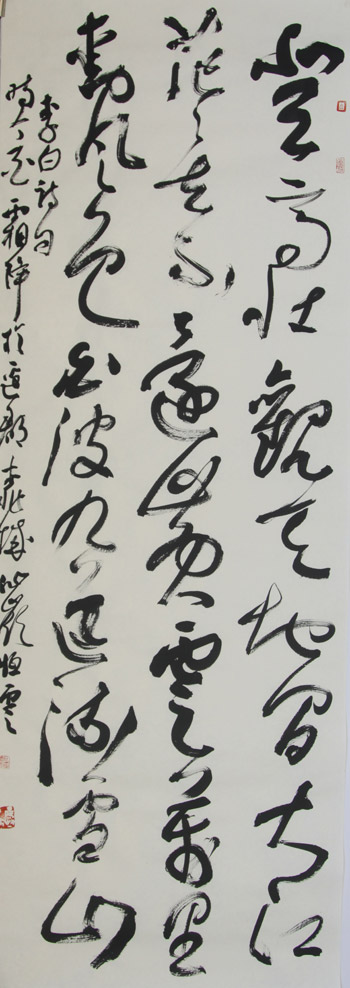 登高壮觀天地間大江
茫茫去不還黄雲萬里
動風色白波九道流雪山
李白詩句
霜降於